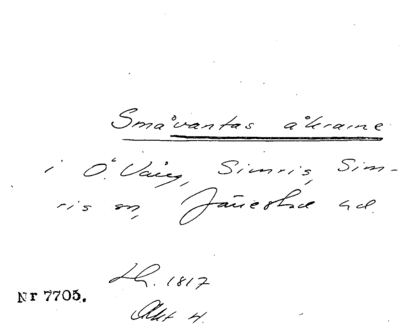 Småvantas åkrarne
i Ö. Vång, Simris, Sim-
ris sn, Järrestad hd.
Lh. 1817
Nr 7705.
Akt 4.